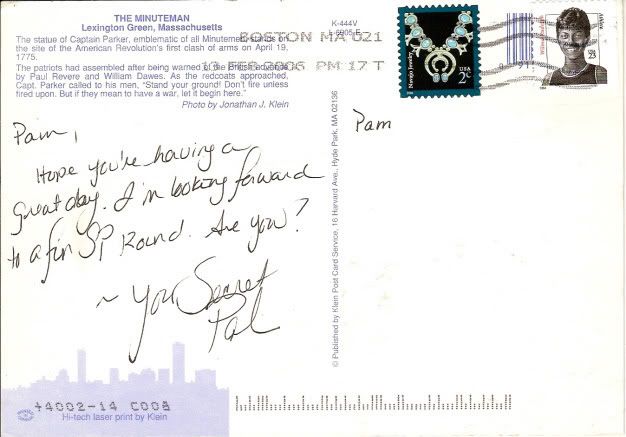 THE MINUTEMAN
Lexington Green, Massachusetts
The statue of Captain Parker, emblematic of all Minutemen, stands on
the site of the American Revolution's first clash of arms on April 19,
1775.
The patriots had assembled after being warned of the British advance
by Paul Revere and William Dawes. As the redcoats approached,
Capt. Parker called to his men, "Stand your ground! Don't fire unless
fired upon. But if they mean to have a war, let it begin here."
Photo by Jonathan J. Klein
K-444V
L-6905-E
BOSTON MA 021
13 FEB 2006 PM 17 T
Navajo Jewelry
USA
2c
USA
23
Pam,
Hope you're having a
great day. I'm looking forward
to a fun SP Round. Are you?
~ You Secret
Pal
© Published by Klein Post Card Service, 16 Harvard Ave., Hyde Park, MA 02136
Pam
44002-14 C008
Hi-tech laser print by Klein